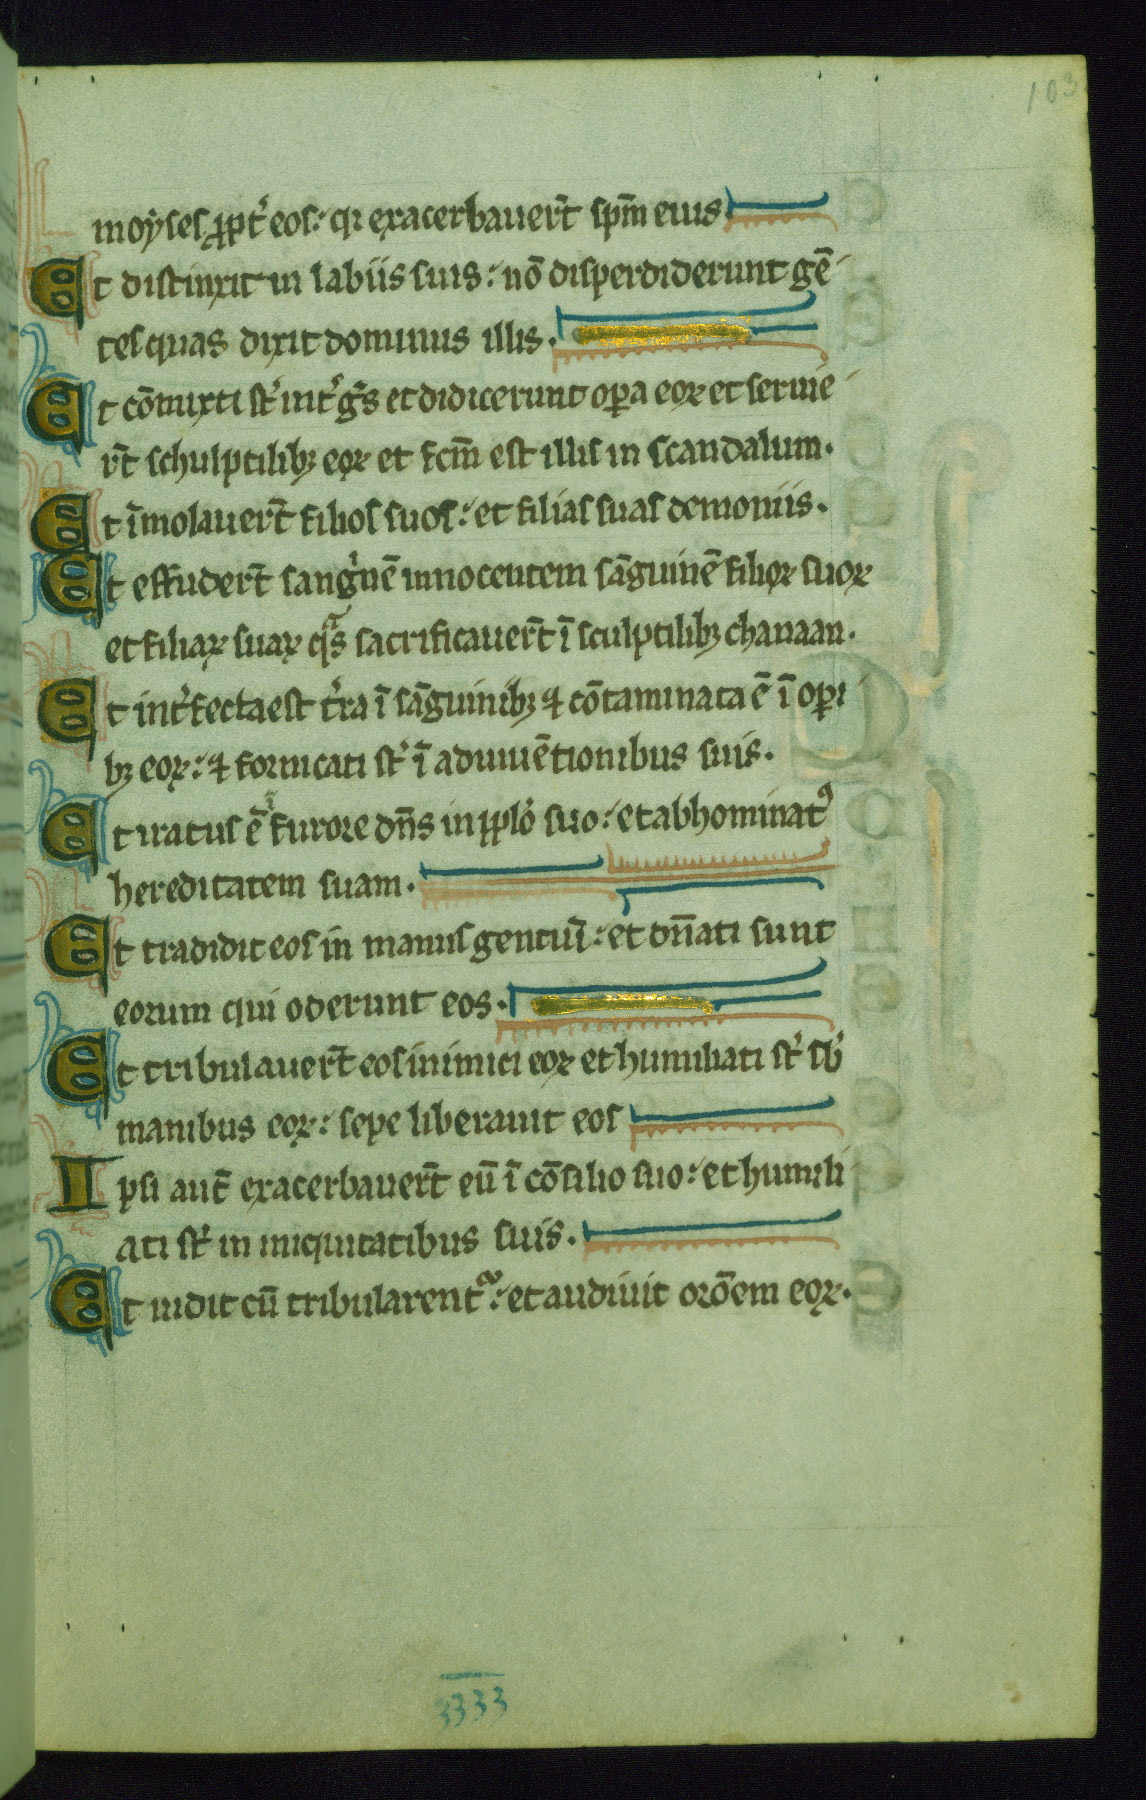 103
moẏses ꝓpt̉ eos: qꝛ exacerbauer̄t sp̄m eius
Et distinxit in labiis suis: nō disperdiderunt gē
tes quas dixit dominus illis.
Et cōmixti st̉ int̉ gn̄s et didicerunt oꝑa eoꝝ et seruie
rt̄ schulptilibꝫ eoꝝ et fc̄m est illis in scandalum.
Et īmolauer̄t filios suos: et filias suas demoniis.
Et effuder̄t sangͥnē innocentem sāguinē filioꝝ suoꝝ
et filiaꝝ suaꝝ qͣs sacrificauer̄t ī sculptilibꝫ chanaan.
Et int̉fecta est t̉ra ī sāguinibꝫ ⁊ cōtaminata ē ī oꝑi
bꝫ eoꝝ: ⁊ fornicati st̉ ī adinuētionibus suis.
Et iratus ē furore dn̄s in pplo̊ suo: et abhominatꝰ
hereditatem suam.
Et tradidit eos in manus gentiū: et dn̄ati sunt
eorum qui oderunt eos.
Et tribulauer̄t eos inimici eoꝝ et humiliati st̉ sb̉
manibus eoꝝ: sepe liberauit eos
Ipsi aut̄ exacerbauer̄t eū ī cōsilio suo: et humili
ati st̉ in iniquitatibus suis.
Et uidit cū tribularent᷑: et audiuit orōem eoꝝ.